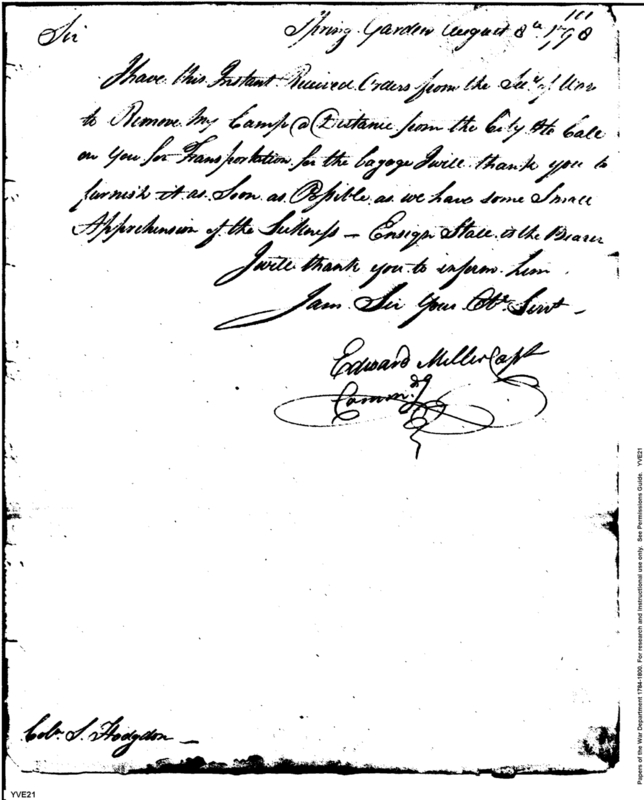 Spring Garden August 8th 1798
Sir
I have this Instant Recieved Orders from the Secy of War
to Remove My Camp a Distance from the City & to Call
on You for Transportation for the bagage I will thank you to
furnish it as Soon as Possible as we have some Small
Apprehension of the Sickness — Ensign Stall is the Bearer
I will thank you to inform him
I am Sir Your Obt Servt —
Edward Miller Capt
Commdg
Colo. S. Hodgdon —
YVE21
Papers of the War Department 1784-1800. For research and instructional use only. See Permissions Guide. YVE21